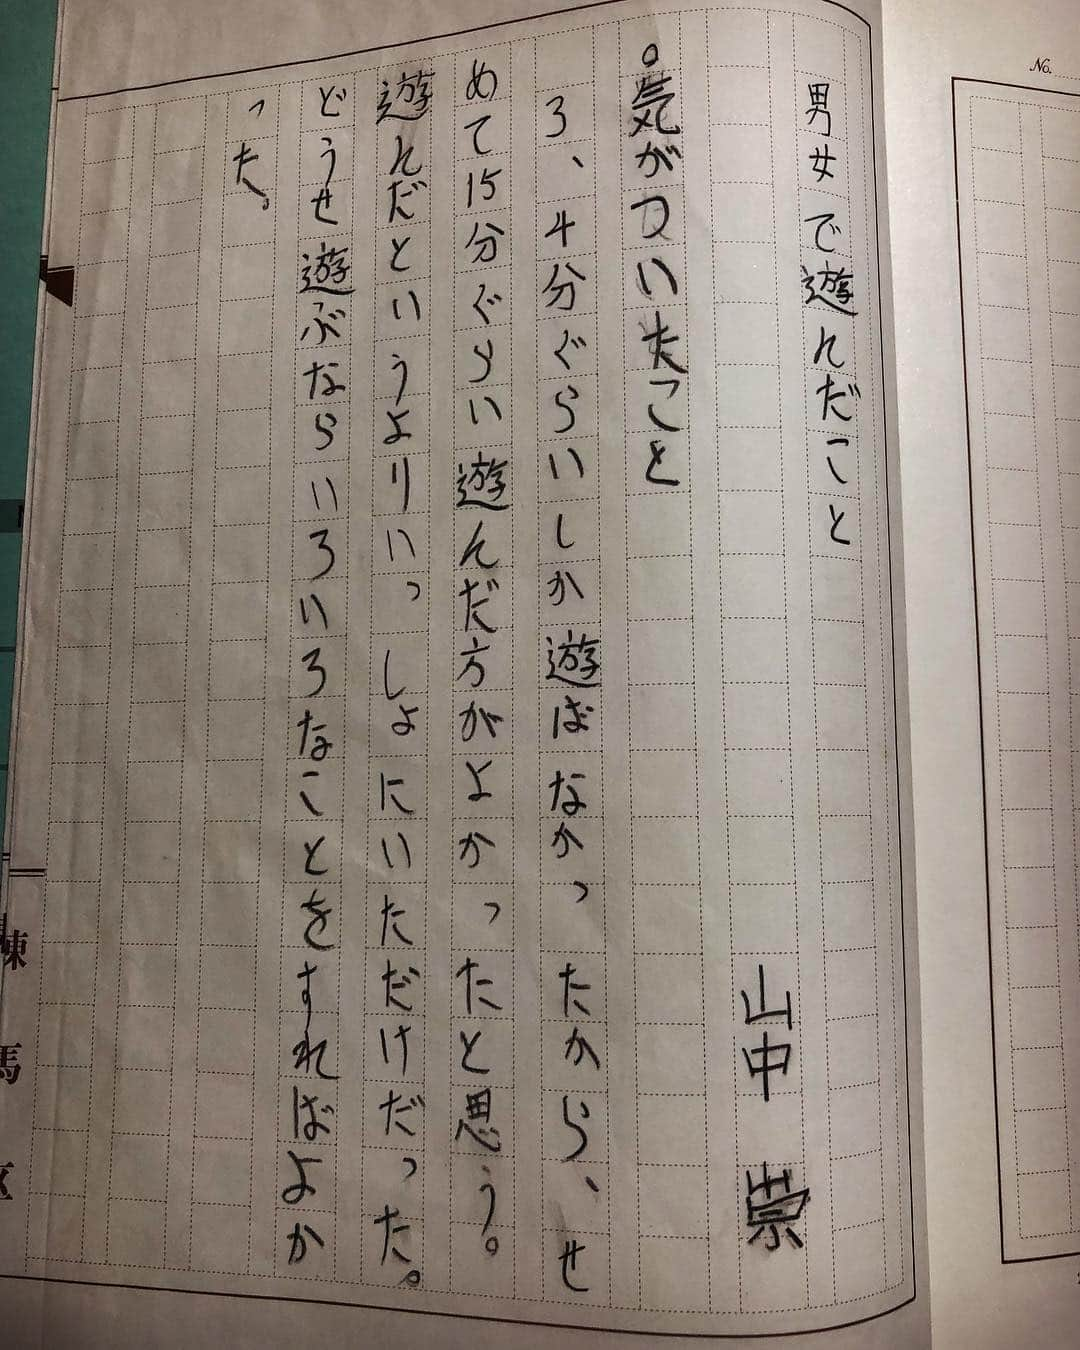 No.
男女で遊んだこと
山中 崇
。気がついたこと
3、4分ぐらいしか遊ばなかったから、せ
めて15分ぐらい遊んだ方がよかったと思う。
遊んだというよりいっしょにいただけだった。
どうせ遊ぶならいろいろなことをすればよか
った。
練馬区